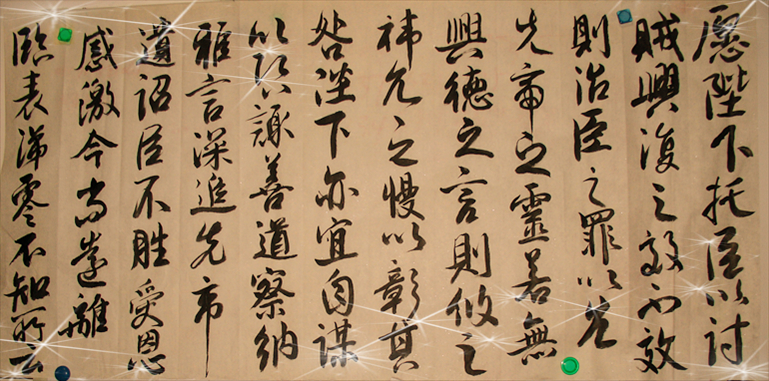 愿陛下托臣以討
賊興復之效不效
則治臣之罪以告
先帝之靈若無
興德之言則攸之
祎允之慢以彰其
咎陛下亦宜自謀
以咨諏善道察納
雅言深追先帝
遺詔臣不胜受恩
感激今當遠離
臨表涕零不知所云